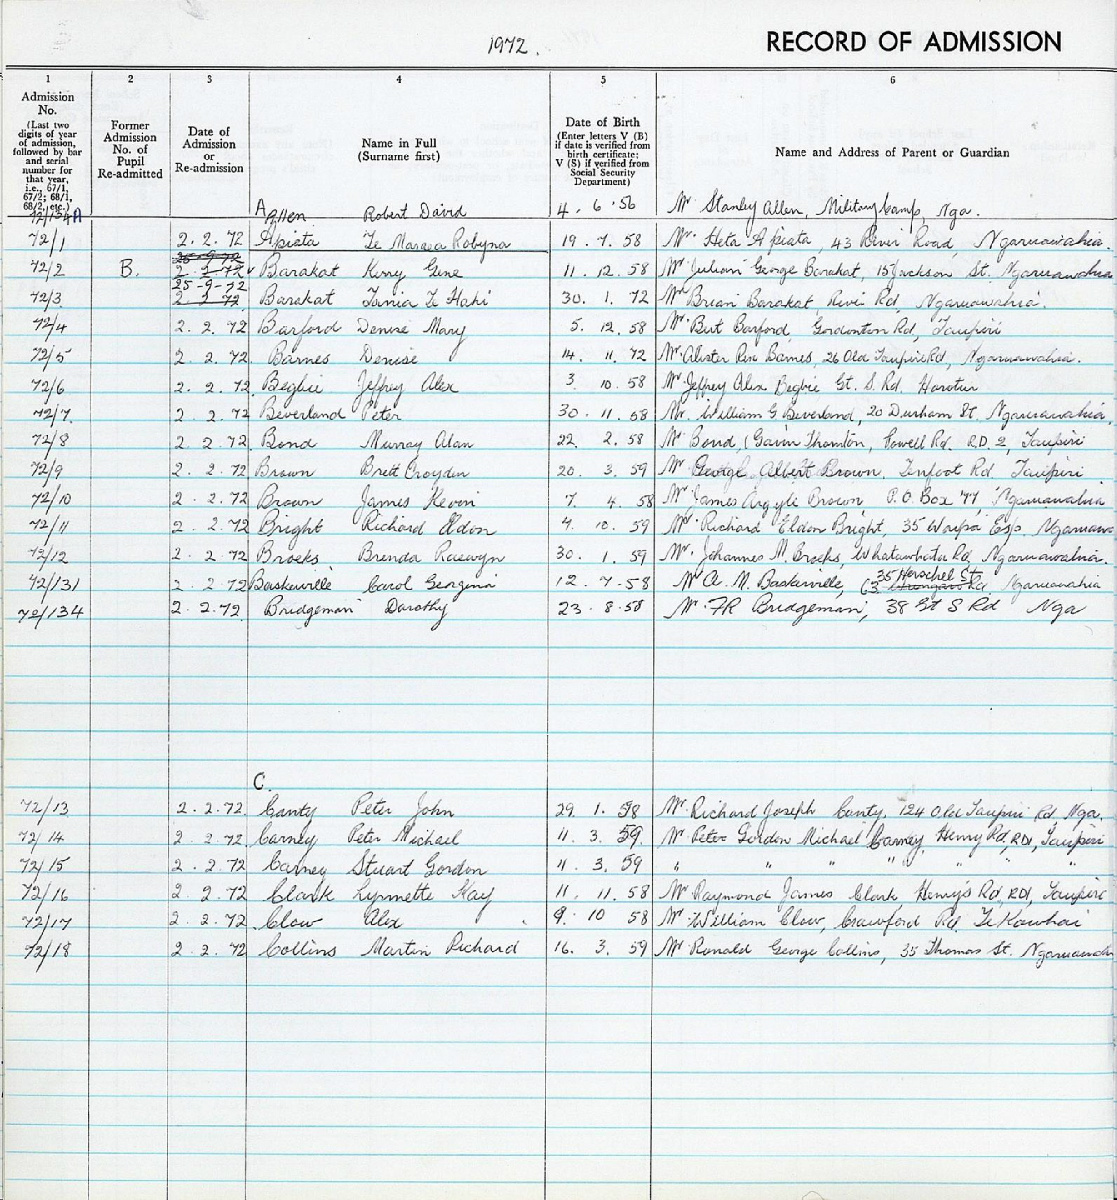 1972.
RECORD OF ADMISSION
1 2 3 4 5 6
Admission No. (Last two digits of year of admission, followed by bar and serial number for that year, i.e., 67/1, 67/2; 68/1, 68/2, etc.)
Former Admission No. of Pupil Re-admitted
Date of Admission or Re-admission
Name in Full (Surname first)
Date of Birth (Enter letters V (B) if date is verified from birth certificate; V (S) if verified from Social Security Department)
Name and Address of Parent or Guardian
A
72/134A Allen Robert David 4. 6. 56 Mr Stanley Allen, Military Camp, Nga.
72/1 2. 2. 72 Apiata Te Maraea Robyna 19. 7. 58 Mr. Heta Apiata, 43 River Road, Ngaruawahia.
25-9-72
72/2 B. 2. 2. 72 Barakat Kerry Gene 11. 12. 58 Mr Julian George Barakat, 15 Jackson St. Ngaruawahia
25-9-72
72/3 2. 2. 72 Barakat Tania Te Hahi 30. 1. 72 Mr Brian Barakat, River Rd, Ngaruawahia.
72/4 2. 2. 72 Barford Denise Mary 5. 12. 58 Mr. Bert Barford, Gordonton Rd, Taupiri
72/5 2. 2. 72 Barnes Denise 14. 11. 72 Mr. Barnes, 26 Old Taupiri Rd, Ngaruawahia.
72/6 2. 2. 72 Begbie Jeffrey Alex 3. 10. 58 Mr. Jeffrey Alex Begbie Gt. S. Rd. Horotiu
72/7. 2. 2. 72 Beverland Peter 30. 11. 58 Mr. William G Beverland, 20 Durham St. Ngaruawahia.
72/8 2. 2. 72 Bond Murray Alan 22. 2. 58 Mr Bond, (Gavin Thornton, Powell Rd. R.D. 2, Taupiri
72/9 2. 2. 72 Brown Brett Croydon 20. 3. 59 Mr George Albert Brown, Infoot Rd Taupiri
72/10 2. 2. 72 Brown James Kevin 7. 4. 58 Mr James Argyle Brown, P.O. Box 77, Ngaruawahia
72/11 2. 2. 72 Bright Richard Eldon 4. 10. 59 Mr. Richard Eldon Bright, 35 Waipa Esp. Ngaruawa
72/12 2. 2. 72 Brooks Brenda Raewyn 30. 1. 59 Mr. Johannes M Brooks, Whatawhata Rd, Ngaruawahia.
35 Herschel St
72/131 2. 2. 72 Baskerville Carol Georgina 12. 7. 58 Mr A. N. Baskerville, 63 Rd, Ngaruawahia
72/134 2. 2. 72. Bridgeman Dorothy 23. 8. 58 Mr. FR Bridgeman, 38 Gt S Rd Nga
C.
72/13 2. 2. 72. Canty Peter John 29. 1. 58 Mr. Richard Joseph Canty, 124 Old Taupiri Rd, Nga.
72/14 2. 2. 72 Carney Peter Michael 11. 3. 59 Mr Peter Gordon Michael Carney Henry Rd, RD1, Taupiri
72/15 2. 2. 72 Carney Stuart Gordon 11. 3. 59 " " " " " "
72/16 2. 2. 72 Clark Lynnette Kay 11. 11. 58 Mr Raymond James Clark, Henry's Rd, RD1, Taupiri
72/17 2. 2. 72 Clow Alex 9. 10 58 Mr. William Clow, Crawford Rd, Te Kowhai
72/18 2. 2. 72 Collins Martin Richard 16. 3. 59 Mr Ronald George Collins, 35 Thomas St. Ngaruawahia